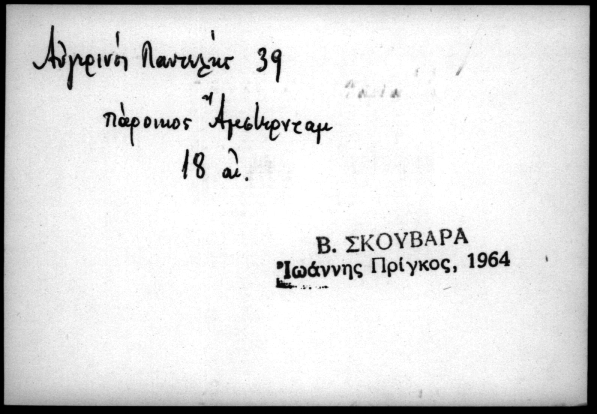 Αὐγερινός Παντελής 39
πάροικος Ἄμστερνταμ
18 αἰ.
Β. ΣΚΟΥΒΑΡΑ
Ἰωάννης Πρίγκος, 1964